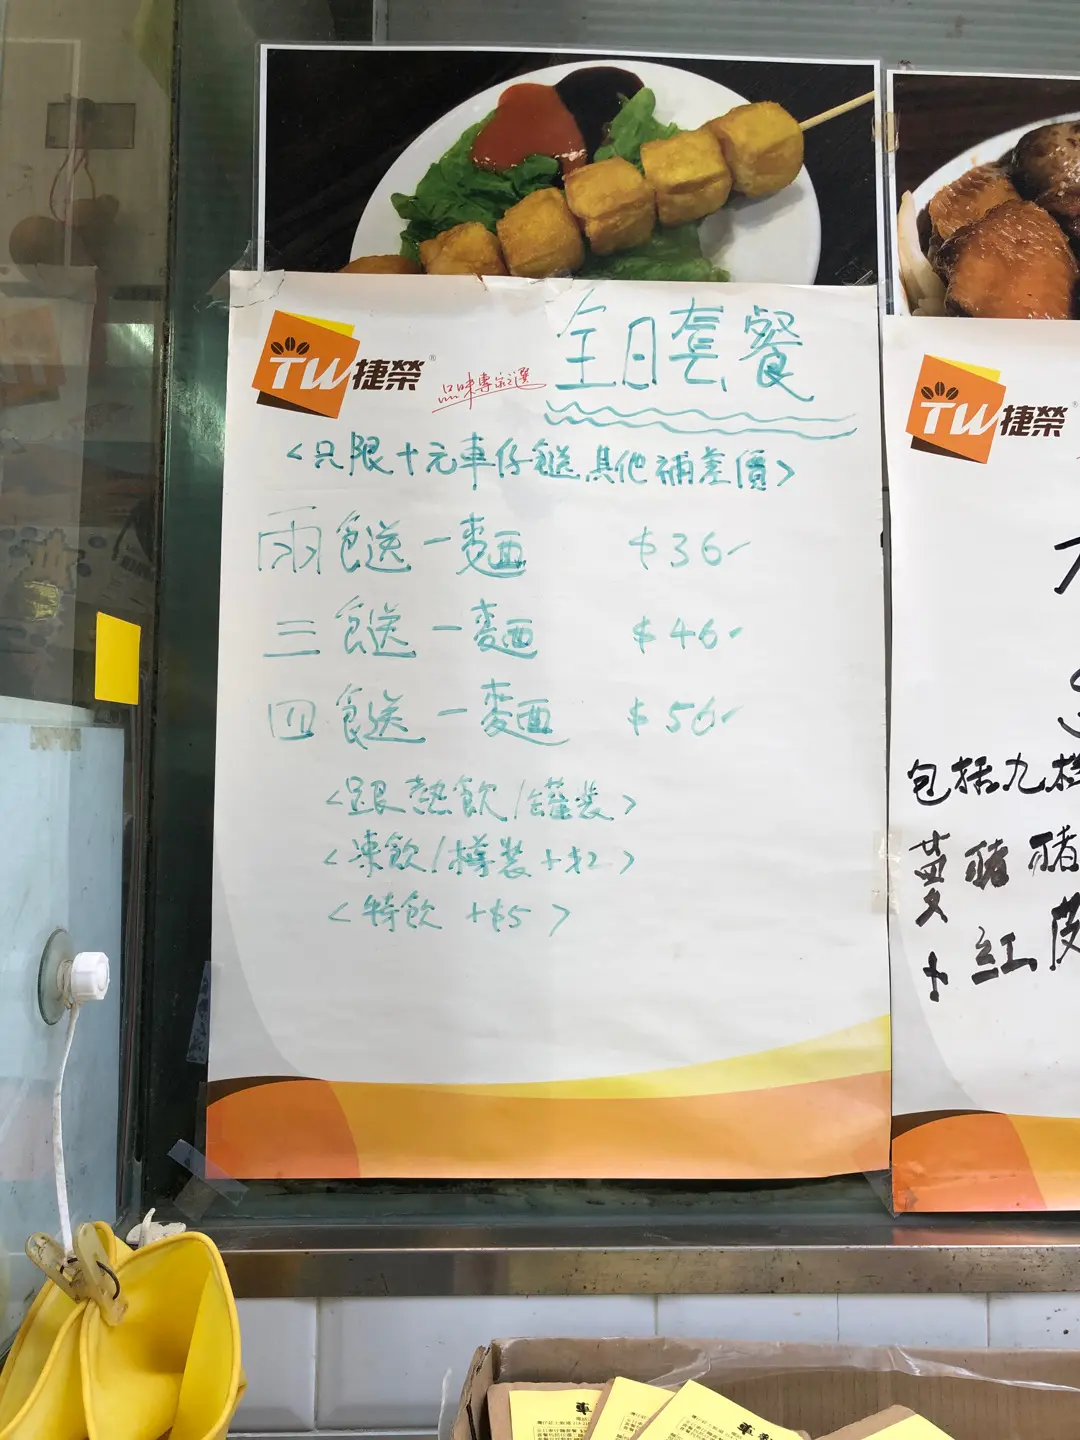 TW 捷榮®
品味專家之選
全日套餐
<只限十元車仔餸其他補差價>
兩餸一麵 $36-
三餸一麵 $46-
四餸一麵 $56-
<跟熱飲/罐裝>
<凍飲/樽裝+$2>
<特飲 +$5>
TW 捷榮®
包括九
黃豬豬
卜紅
車